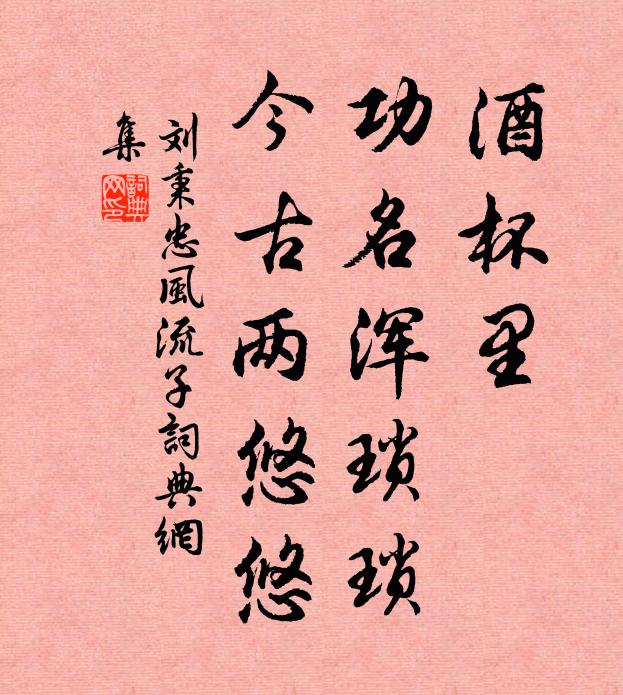 酒杯里
功名浑琐琐
今古两悠悠
刘秉忠風流子詞典網
集
詞典
网印